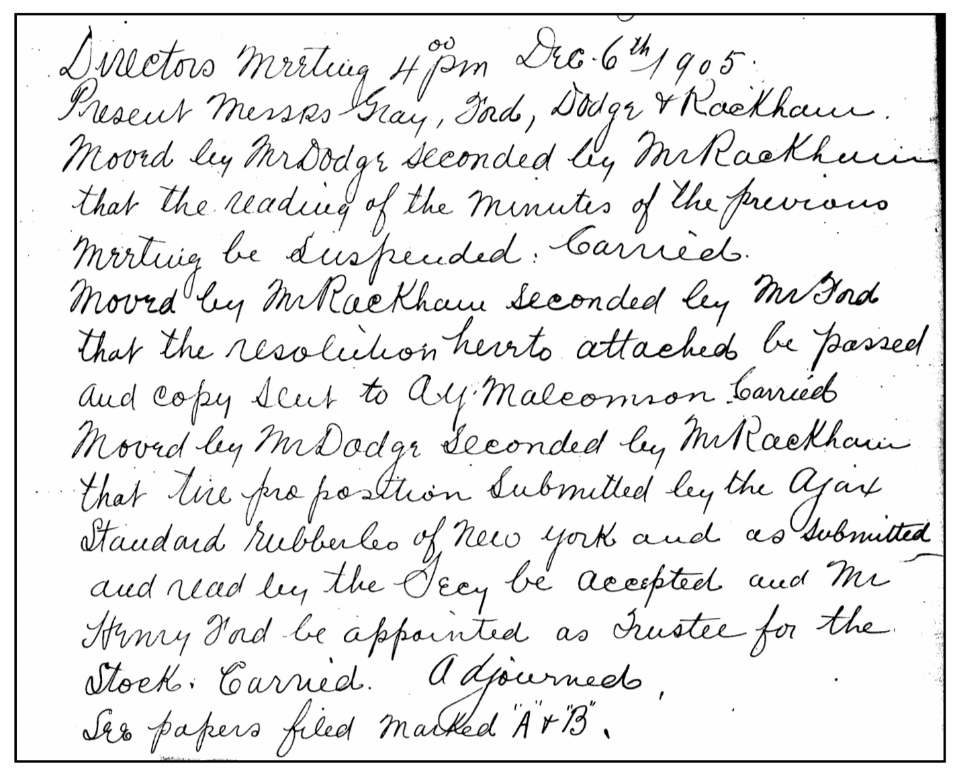 Directors Meeting 4⁰⁰ pm Dec. 6th 1905.
Present Messrs Gray, Ford, Dodge & Rackham.
Moved by Mr Dodge seconded by Mr Rackham
that the reading of the minutes of the previous
meeting be suspended. Carried.
Moved by Mr Rackham seconded by Mr Ford
that the resolution hereto attached be passed
and copy sent to A.Y. Malcomson. Carried
Moved by Mr Dodge seconded by Mr Rackham
that tire proposition submitted by the Ajax
Standard Rubber Co of New York and as submitted
and read by the Secy be accepted and Mr
Henry Ford be appointed as Trustee for the
Stock. Carried. Adjourned.
See papers filed marked "A" & "B".